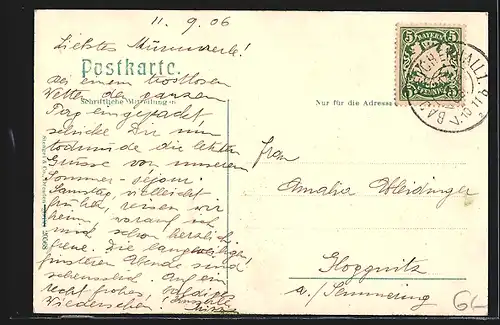 11. 9. 06
Liebstes Mümmerle!
Postkarte.
Bei einem trostlosen
Wetter den ganzen
Schriftliche Mitteilungen
Tag eingepackt,
schicke Dir nun
todmüde die letzten
Grüsse von unserem
Sommer-séjour.
Samstag, vielleicht
früher, reisen wir
heim, worauf ich
mich schon herzlich
freue. Die langweiligen,
finsteren Abende sind
scheusslich. Auf ein
recht frohes, baldiges
Wiedersehen!
Nur für die Adresse
BAYERN
5
5
PFENNIG
BAD
Frau
Amalia Weidinger
Gloggnitz
a./Semmering
6/-